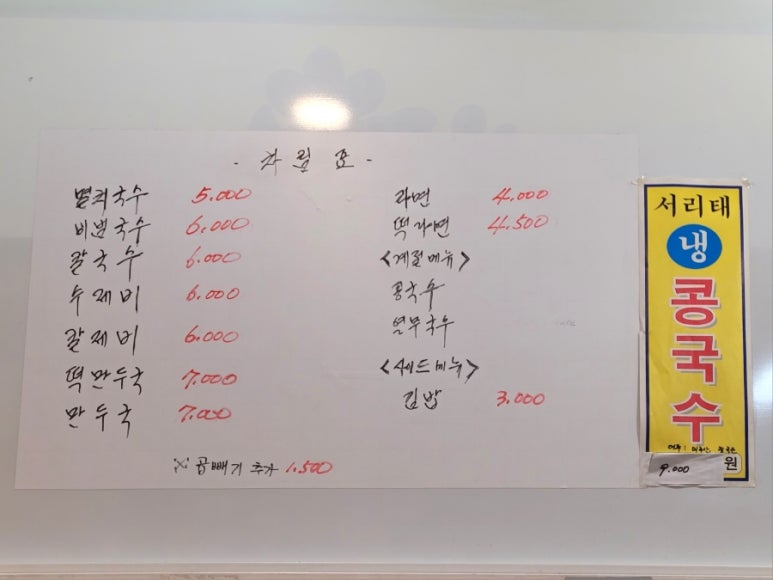 - 차림표 -
멸치국수 5.000
비빔국수 6.000
칼국수 6.000
수제비 6.000
칼제비 6.000
떡만두국 7.000
만두국 7.000
※ 곱빼기 추가 1.500
라면 4.000
떡라면 4.500
<계절메뉴>
콩국수
열무국수
<사이드메뉴>
김밥 3.000
서리태
냉
콩
국
수
9.000 원